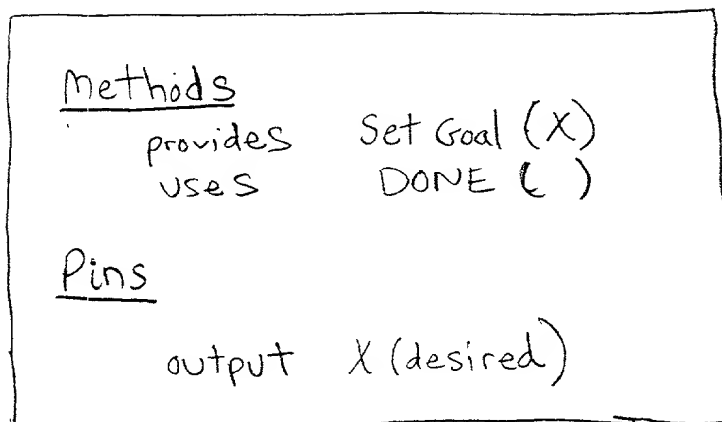 Methods
provides Set Goal (X)
uses DONE ( )
Pins
output X (desired)